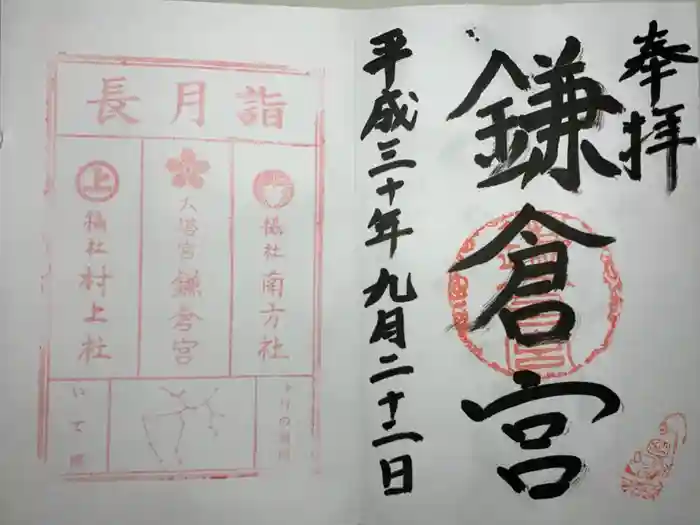 奉拝
鎌倉宮
平成三十年九月二十二日
詣月長
摂社 南方社
大塔宮 鎌倉宮
上
摂社 村上社
いて座